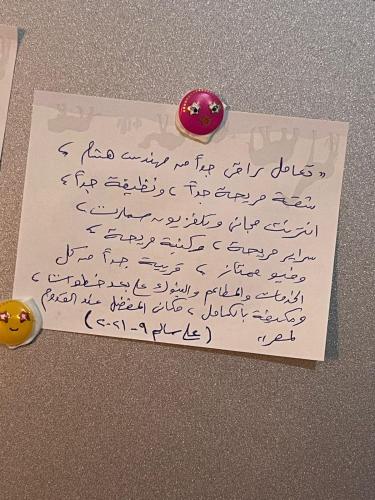 " تعامل راقي جداً من مهندس هشام ،
شقة مريحة جداً ، ونظيفة جداً ،
انترنت مجاني وتلفزيون سمارت ،
سراير مريحة ، وكنبة مريحة ،
وفيو ممتاز ، قريبة جداً من كل
الخدمات والمطاعم والبنوك على بعد خطوات ،
ومكيفة بالكامل ، مكان المفضل عند القدوم
لمصر "
( علي سالم ٩-٢٠٢١ )